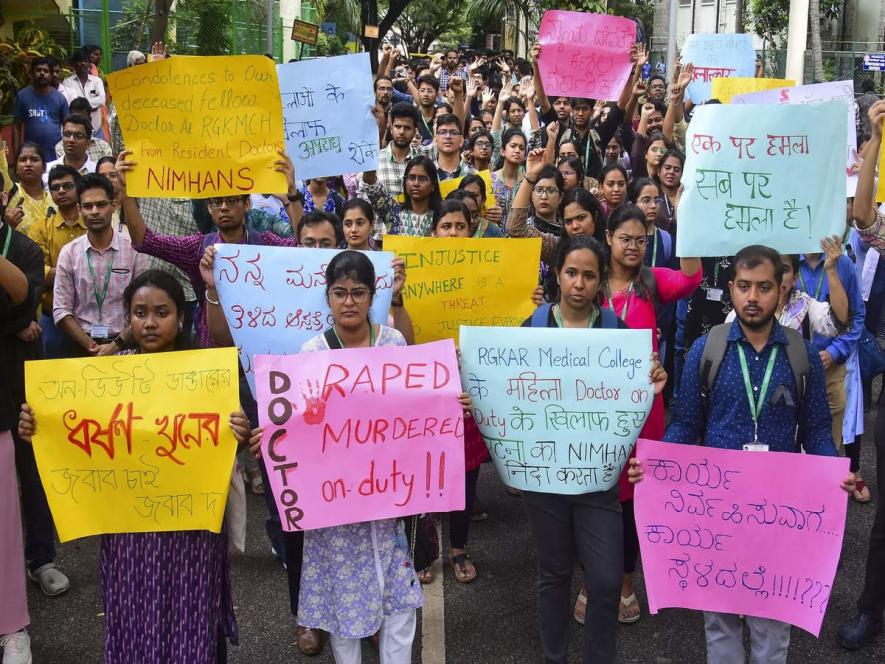 Condolences to Our
deceased fellow
Doctor At RGKMCH
From Resident Doctors
NIMHANS
के
अपराध
रोको
एक पर हमला
सब पर
हमला है!
INJUSTICE
ANYWHERE IS A
THREAT
TO JUSTICE EVERY
ನನ್ನ
অন-ডিউটি ডাক্তারের
ধর্ষণ খুনের
জবাব চাই
জবাব দ
DOCTOR
RAPED
MURDERED
on-duty!!
RGKAR Medical College
के महिला Doctor on
Duty के खिलाफ हुए
का NIMHAN
निंदा करता है
ಕಾರ್ಯ
ನಿರ್ವಹಿಸುವಾಗ....
ಕಾರ್ಯ
ಸ್ಥಳದಲ್ಲೆ!!!!???